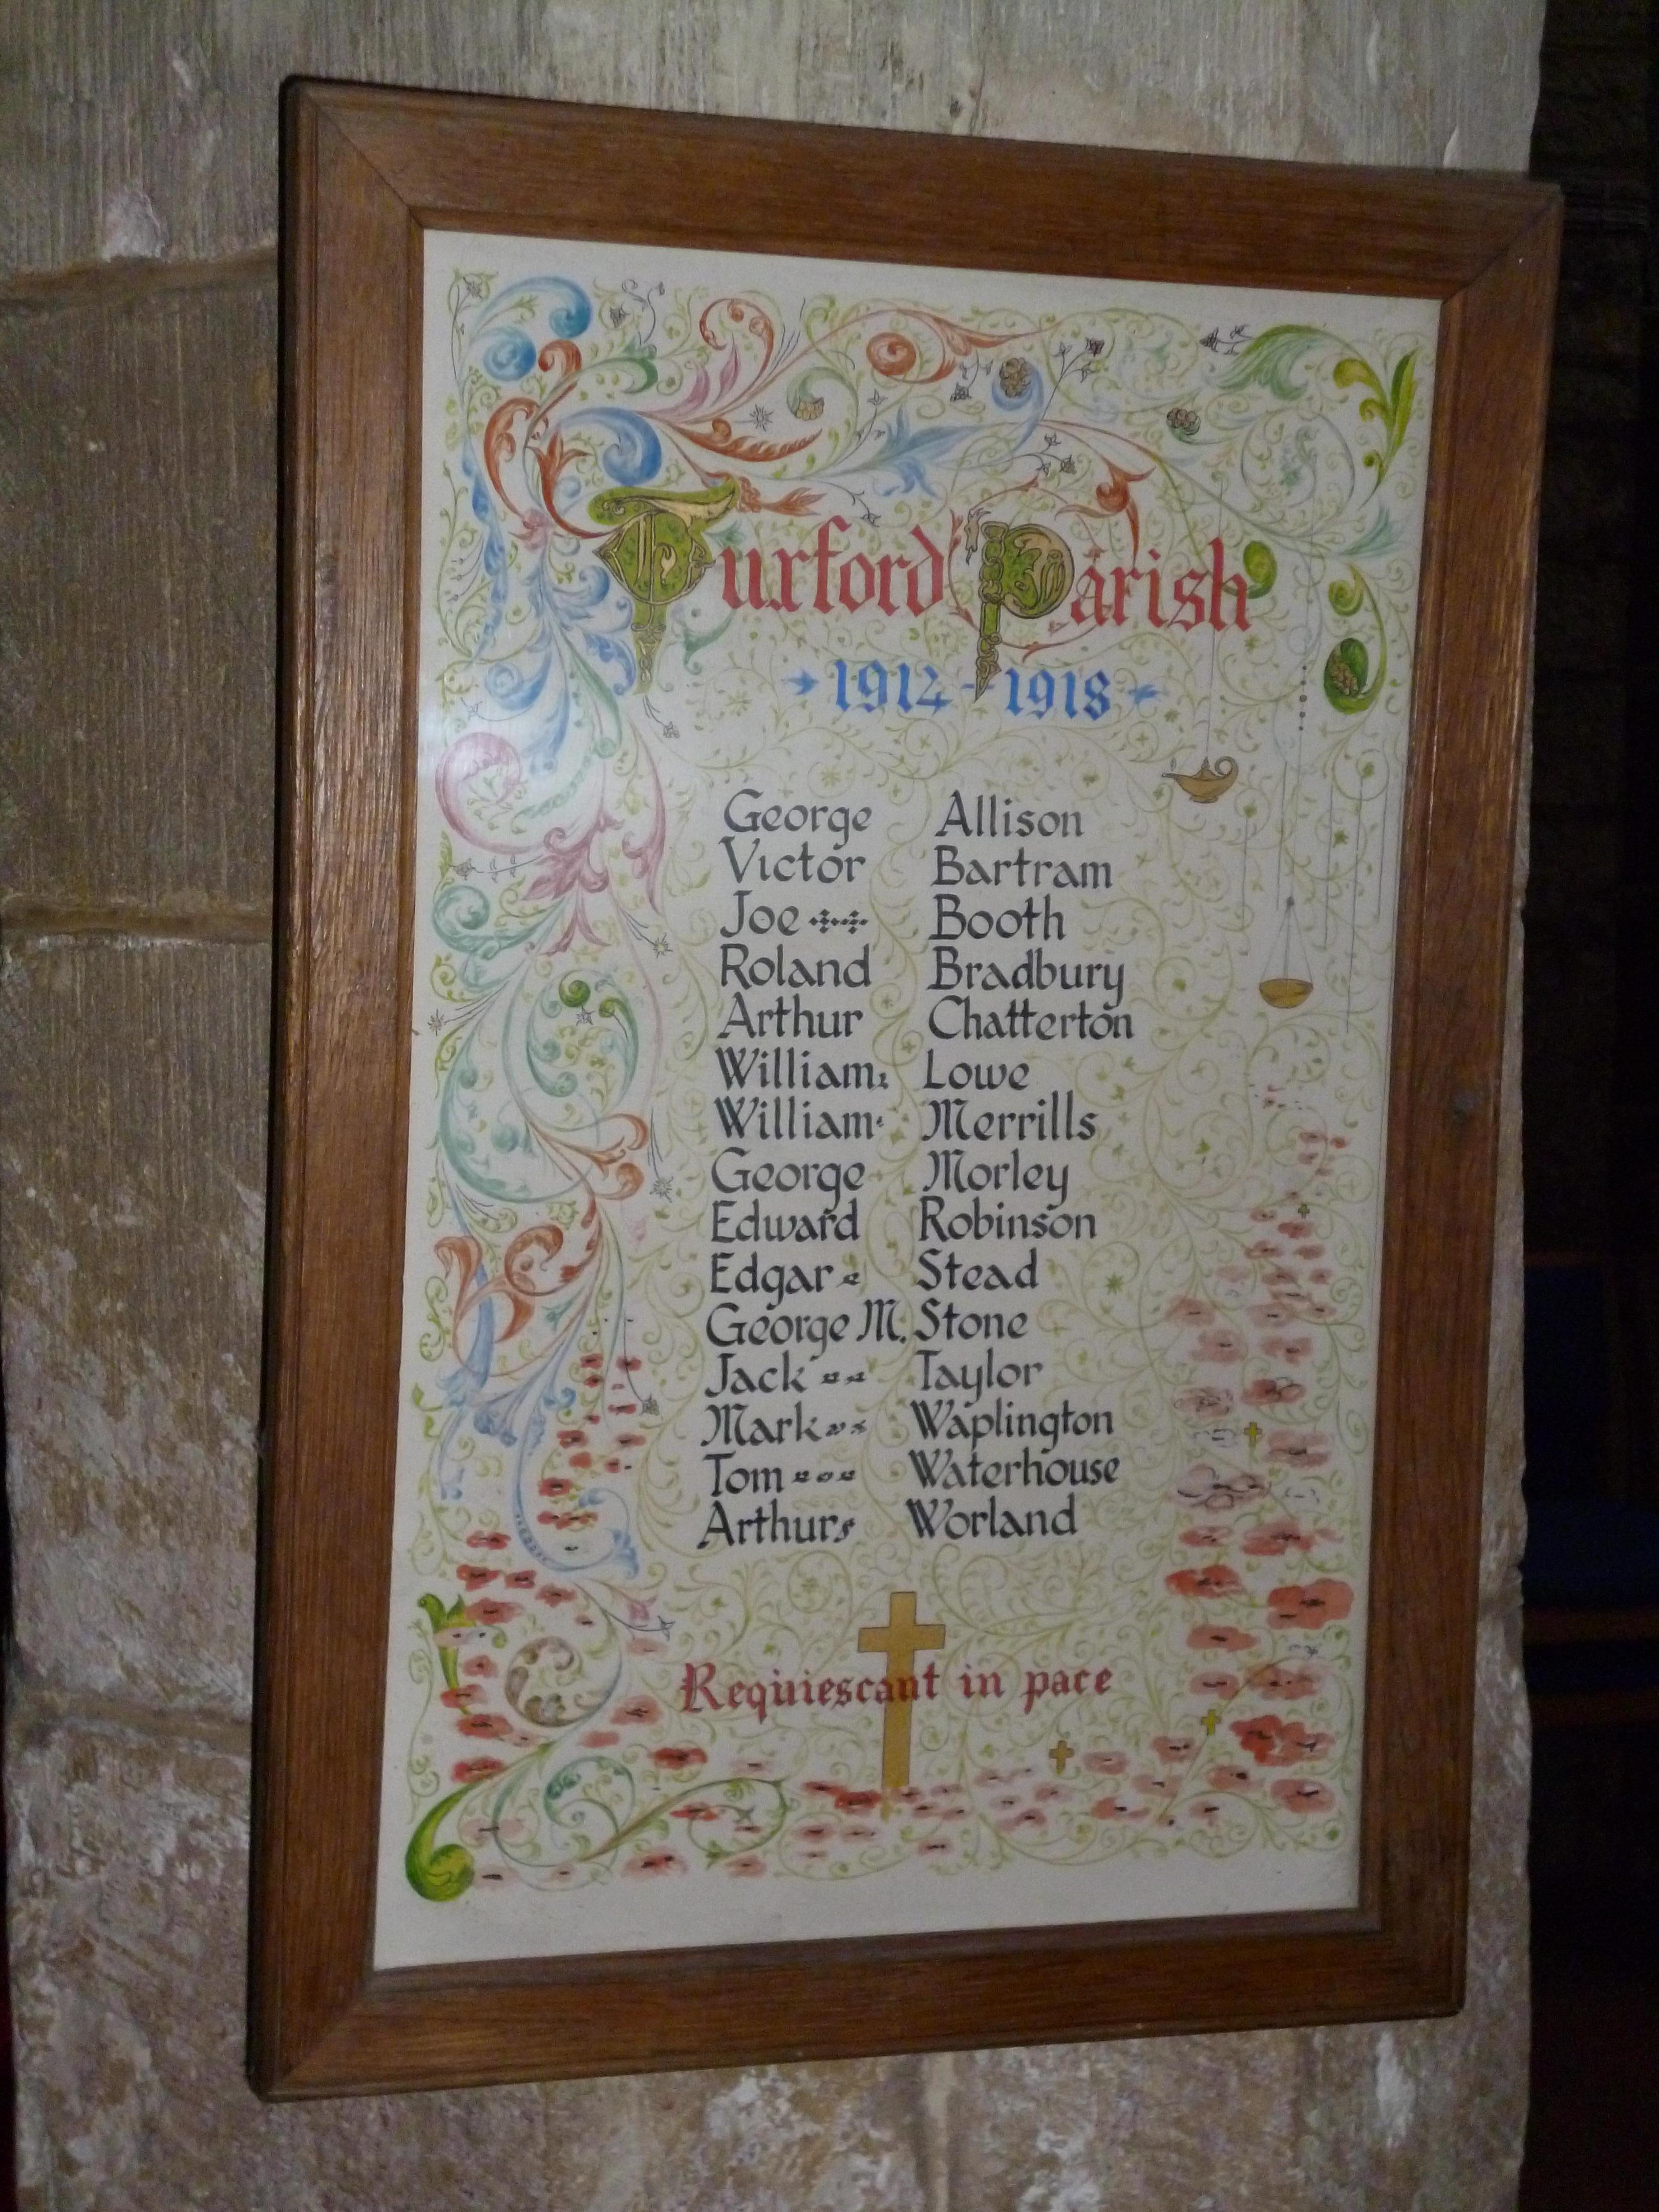 Tuxford Parish
1914 - 1918
George Allison
Victor Bartram
Joe Booth
Roland Bradbury
Arthur Chatterton
William Lowe
William Merrills
George Morley
Edward Robinson
Edgar Stead
George M. Stone
Jack Taylor
Mark Waplington
Tom Waterhouse
Arthur Worland
Requiescant in pace